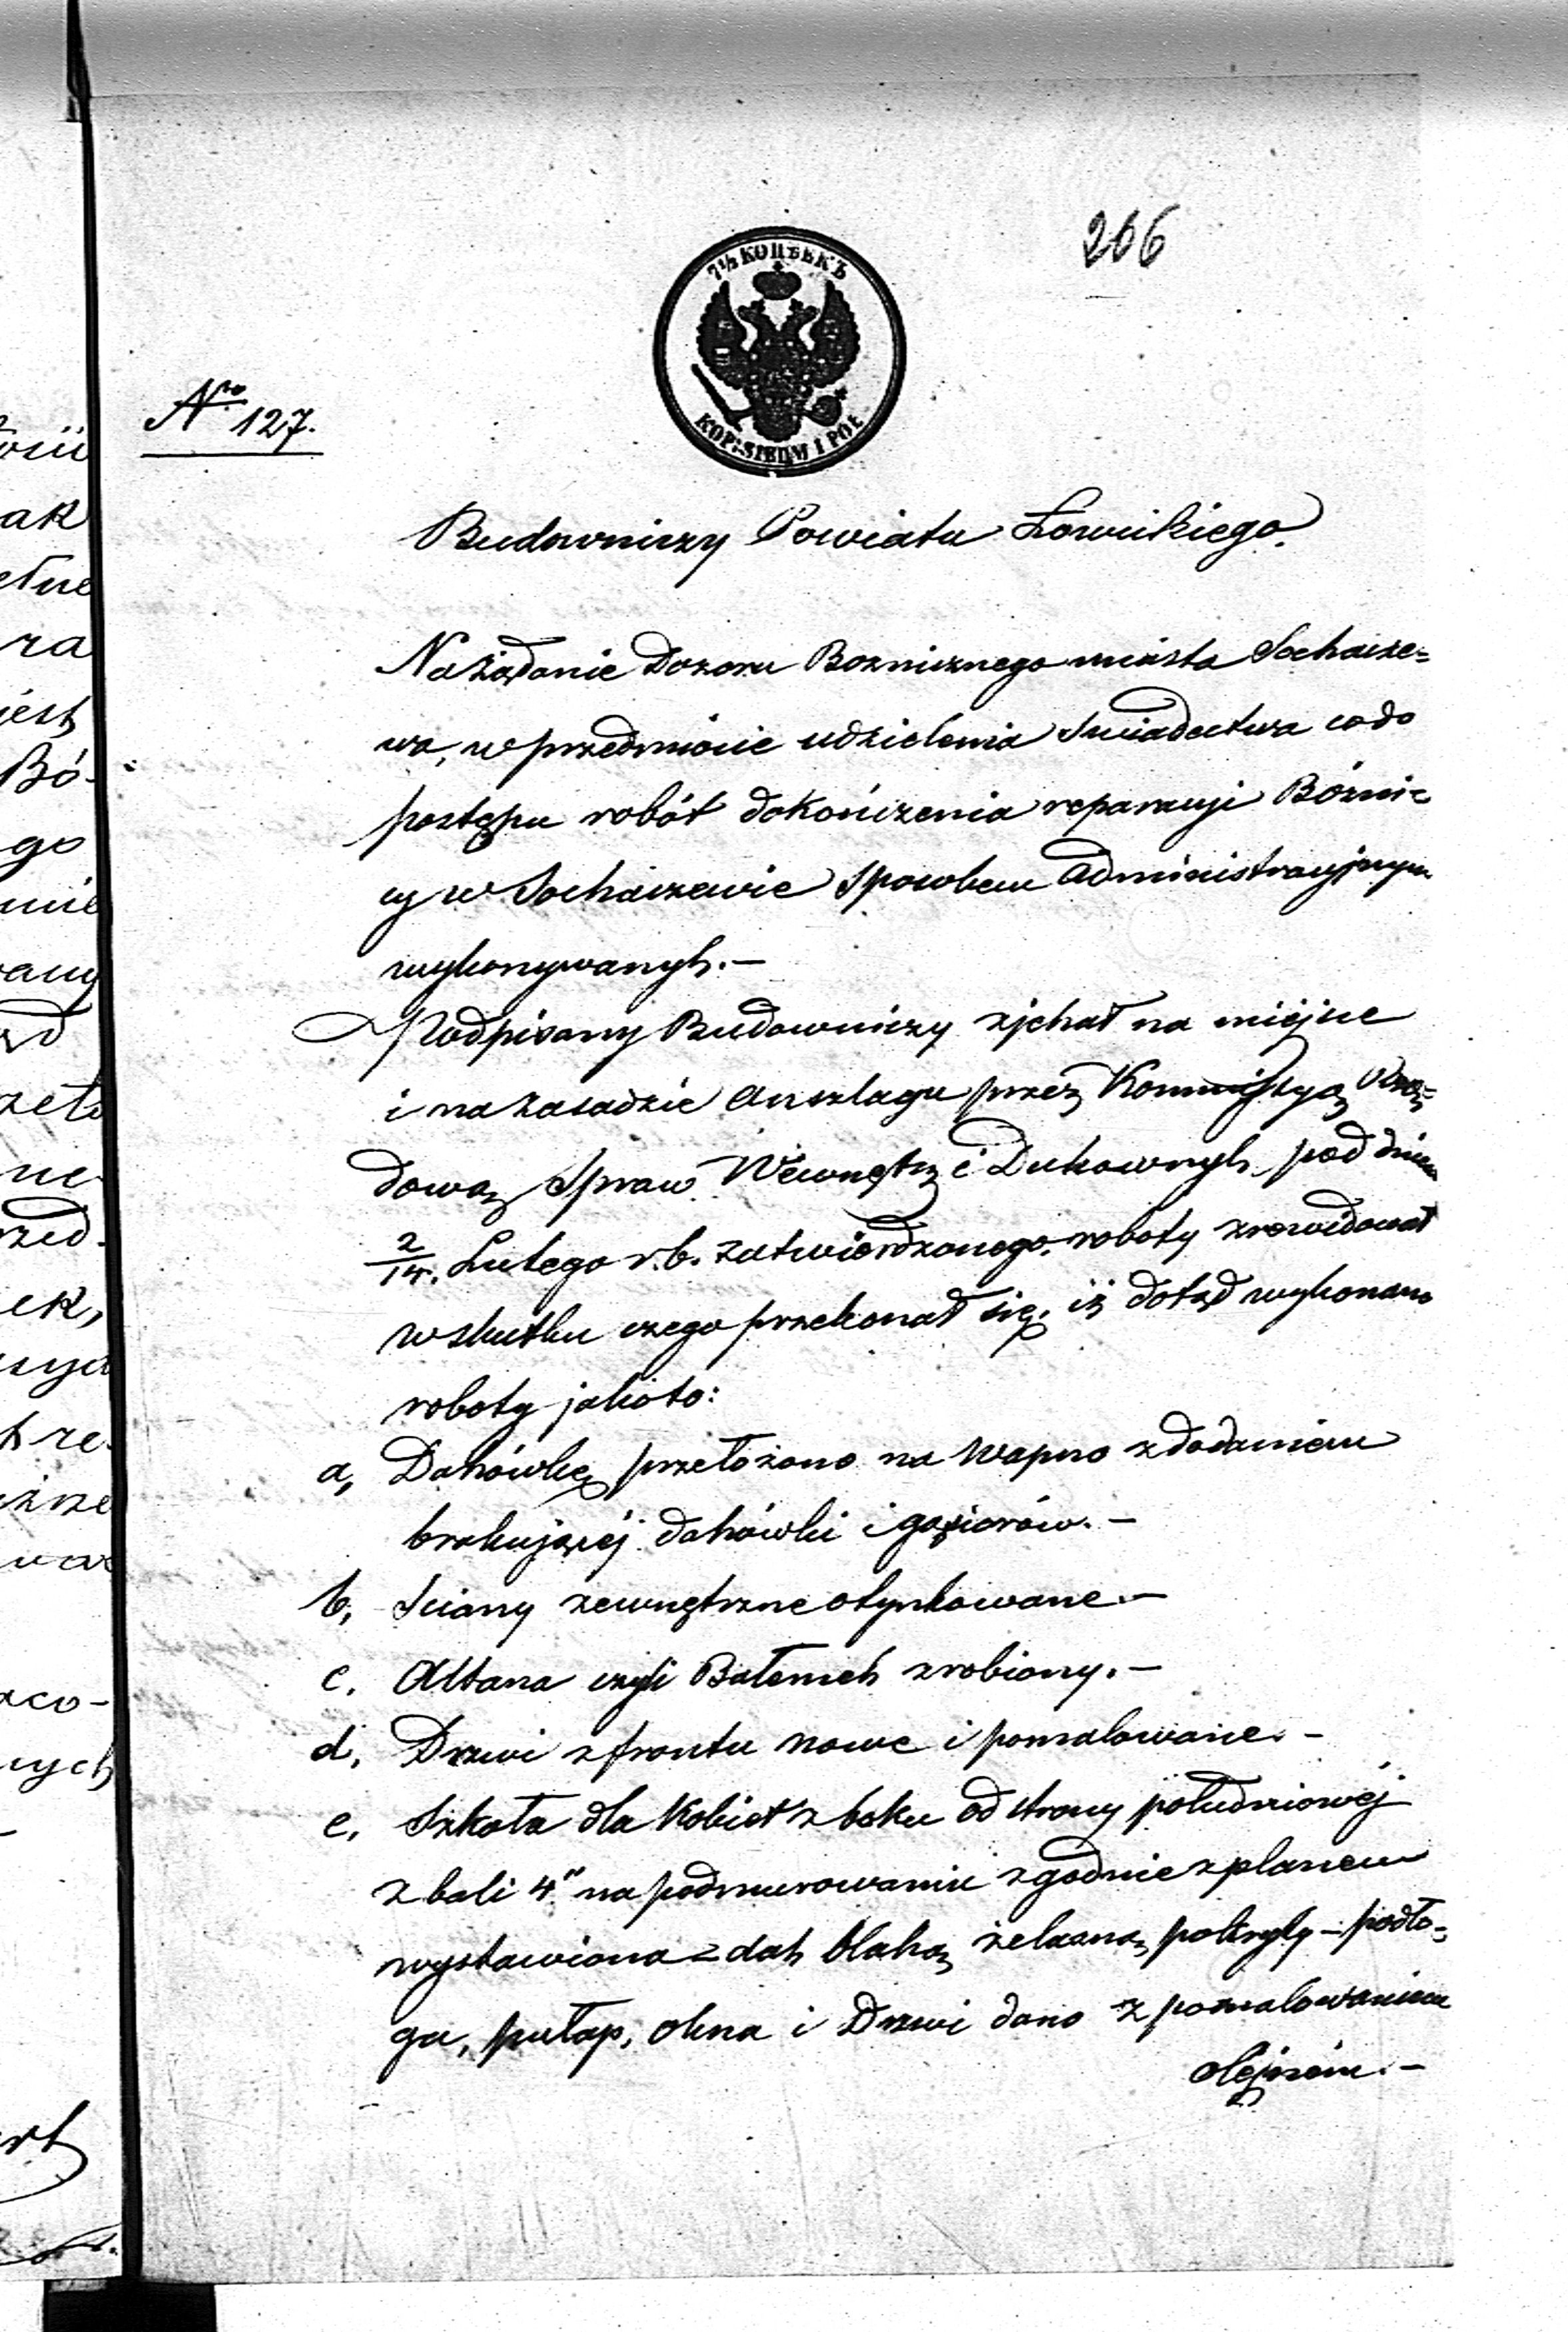 206
7½ КОПѢЕКЪ
KOP: SIEDM I PÓŁ
Nro 127.
Budowniczy Powiatu Łowickiego.
Na żądanie Dozoru Bożnicznego miasta Sochacze=
wa, w przedmiocie udzielenia Świadectwa co do
postępu robót dokończenia reparacyi Bóżni=
cy w Sochaczewie Sposobem administracyjnym
wykonywanych.—
Podpisany Budowniczy zjechał na miejsce
i na zasadzie Anszlagu przez Kommissyą Rzą=
dową Spraw Wewnętrz i Duchownych pod dniem
2/14. Lutego r.b. zatwierdzonego, roboty zrewidował
w skutku czego przekonał się, iż dotąd wykonano
roboty jakoto:
a, Dahówkę przełożono na wapno z dodaniem
brakującéj dahówki i gąsiorów.—
b, Ściany zewnętrzne otynkowane.—
c. Altana czyli Bałemeh zrobiony.—
d, Drzwi z frontu nowe i pomalowane.—
e, Szkoła dla Kobiet z boku od strony południowéj
z bali 4" na podmurowaniu zgodnie z planem
wystawiona = dah blahą żelazną pokryty – podło=
ga, pułap, okna i Drzwi dano z pomalowaniem
olejném.—
ak
ra
jest
Bó-
go
ek,
t re-